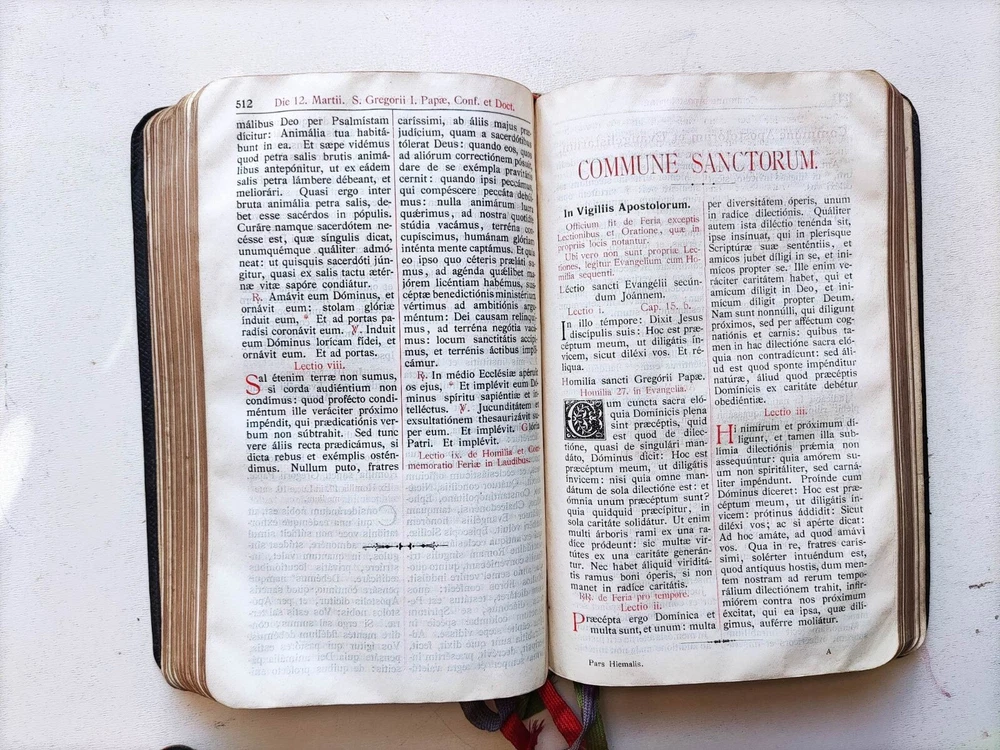 512 Die 12. Martii. S. Gregorii I. Papæ, Conf. et Doct.
málibus Deo per Psalmistam
dícitur: Animália tua habitá-
bunt in ea. Et sæpe vidémus
quod petra salis brutis animá-
libus antepónitur, ut ex eádem
salis petra lámbere débeant, et
meliorári. Quasi ergo inter
bruta animália petra salis, de-
bet esse sacérdos in pópulis.
Curáre namque sacerdótem ne-
césse est, quæ síngulis dicat,
unumquémque quáliter admó-
neat: ut quisquis sacerdóti jún-
gitur, quasi ex salis tactu ætér-
næ vitæ sapóre condiátur.
℟. Amávit eum Dóminus, et
ornávit eum: stolam glóriæ
índuit eum, * Et ad portas pa-
radísi coronávit eum. ℣. Induit
eum Dóminus lorícam fídei, et
ornávit eum. Et ad portas.
Lectio viii.
Sal étenim terræ non sumus,
si corda audiéntium non
condímus: quod profécto condi-
méntum ille veráciter próximo
impéndit, qui prædicatiónis ver-
bum non súbtrahit. Sed tunc
vere áliis recta prædicámus, si
dicta rebus et exémplis ostén-
dimus. Nullum puto, fratres
caríssimi, ab áliis majus præ-
judícium, quam a sacerdótibus
tólerat Deus: quando eos, quos
ad aliórum correctiónem pósuit,
dare de se exémpla pravitátis
cernit: quando ipsi peccámus,
qui compéscere peccáta debúi-
mus: nulla animárum lucra
quǽrimus, ad nostra quotídie
stúdia vacámus, terréna con-
cupíscimus, humánam glóriam
inténta mente captámus. Et quia
eo ipso quo céteris præláti su-
mus, ad agénda quǽlibet ma-
jórem licéntiam habémus, sus-
céptæ benedictiónis ministérium
vértimus ad ambitiónis argu-
méntum: Dei causam relínqui-
mus, ad terréna negótia vacá-
mus: locum sanctitátis accípi-
mus, et terrénis áctibus impli-
cámur.
℟. In médio Ecclésiæ apéruit
os ejus, * Et implévit eum Dó-
minus spíritu sapiéntiæ et in-
telléctus. ℣. Jucunditátem et
exsultatiónem thesaurizávit su-
per eum. Et implévit. Glória
Patri. Et implévit.
Lectio ix. de Homilia et Com-
memoratio Feriæ in Laudibus.
COMMUNE SANCTORUM.
In Vigiliis Apostolorum.
Officium fit de Feria exceptis
Lectionibus et Oratione, quæ in
propriis locis notantur.
Ubi vero non sunt propriæ Lec-
tiones, legitur Evangelium cum Ho-
milia sequenti.
Léctio sancti Evangélii secún-
dum Joánnem.
Lectio i. Cap. 15. b.
In illo témpore: Dixit Jesus
discípulis suis: Hoc est præ-
céptum meum, ut diligátis ín-
vicem, sicut diléxi vos. Et ré-
liqua.
Homilía sancti Gregórii Papæ.
Homilia 27. in Evangelia.
Cum cuncta sacra eló-
quia Domínicis plena
sint præcéptis, quid
est quod de dilec-
tióne, quasi de singulári man-
dáto, Dóminus dicit: Hoc est
præcéptum meum, ut diligátis
ínvicem: nisi quia omne man-
dátum de sola dilectióne est: et
ómnia unum præcéptum sunt?
quia quidquid præcípitur, in
sola caritáte solidátur. Ut enim
multi árboris rami ex una ra-
díce pródeunt: sic multæ vir-
tútes ex una caritáte generán-
tur. Nec habet áliquid viriditá-
tis ramus boni óperis, si non
manet in radíce caritátis.
℟℟. de Feria pro tempore.
Lectio ii.
Præcépta ergo Domínica et
multa sunt, et unum: multa
per diversitátem óperis, unum
in radíce dilectiónis. Quáliter
autem ista diléctio tenénda sit,
ipse insínuat, qui in plerísque
Scriptúræ suæ senténtiis, et
amícos jubet díligi in se, et ini-
mícos propter se. Ille enim ve-
ráciter caritátem habet, qui et
amícum díligit in Deo, et ini-
mícum díligit propter Deum.
Nam sunt nonnúlli, qui díligunt
próximos, sed per afféctum cog-
natiónis et carnis: quibus ta-
men in hac dilectióne sacra eló-
quia non contradícunt: sed áli-
ud est quod sponte impénditur
natúræ, áliud quod præcéptis
Domínicis ex caritáte debétur
obediéntiæ.
Lectio iii.
Hi nímirum et próximum dí-
ligunt, et tamen illa sub-
límia dilectiónis prǽmia non
assequúntur: quia amórem su-
um non spirituáliter, sed carná-
liter impéndunt. Proínde cum
Dóminus díceret: Hoc est præ-
céptum meum, ut diligátis ín-
vicem: prótinus áddidit: Sicut
diléxi vos; ac si apérte dicat:
Ad hoc amáte, ad quod amávi
vos. Qua in re, fratres carís-
simi, solérter intuéndum est,
quod antíquus hostis, dum men-
tem nostram ad rerum tempo-
rálium dilectiónem trahit, infir-
miórem contra nos próximum
éxcitat, qui ea ipsa, quæ dilí-
gimus, auférre moliátur.
Pars Hiemalis. A